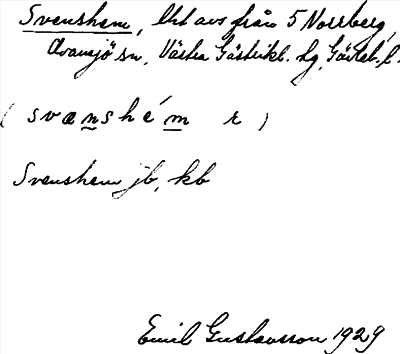 Svenshem, lht avs från 5 Norrberg,
Ovansjö sn, Västra Gästrikl. hg, Gävleb. l.
(svænshém r)
Svenshem jb, kb
Emil Gustavsson 1929